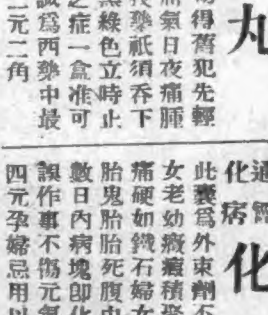 丸
得舊犯先輕
痛氣日夜痛腫
後藥祇須吞下
黑綠色立時止
之症一盒准可
誠爲西藥中最
元二角
化
通經
化痞
此囊爲外束劑不
女老幼癥瘕積聚
痛硬如鐵石婦女
胎鬼胎胎死腹中
數日內病塊卽化
誤作事不傷元氣
四元孕婦忌用以